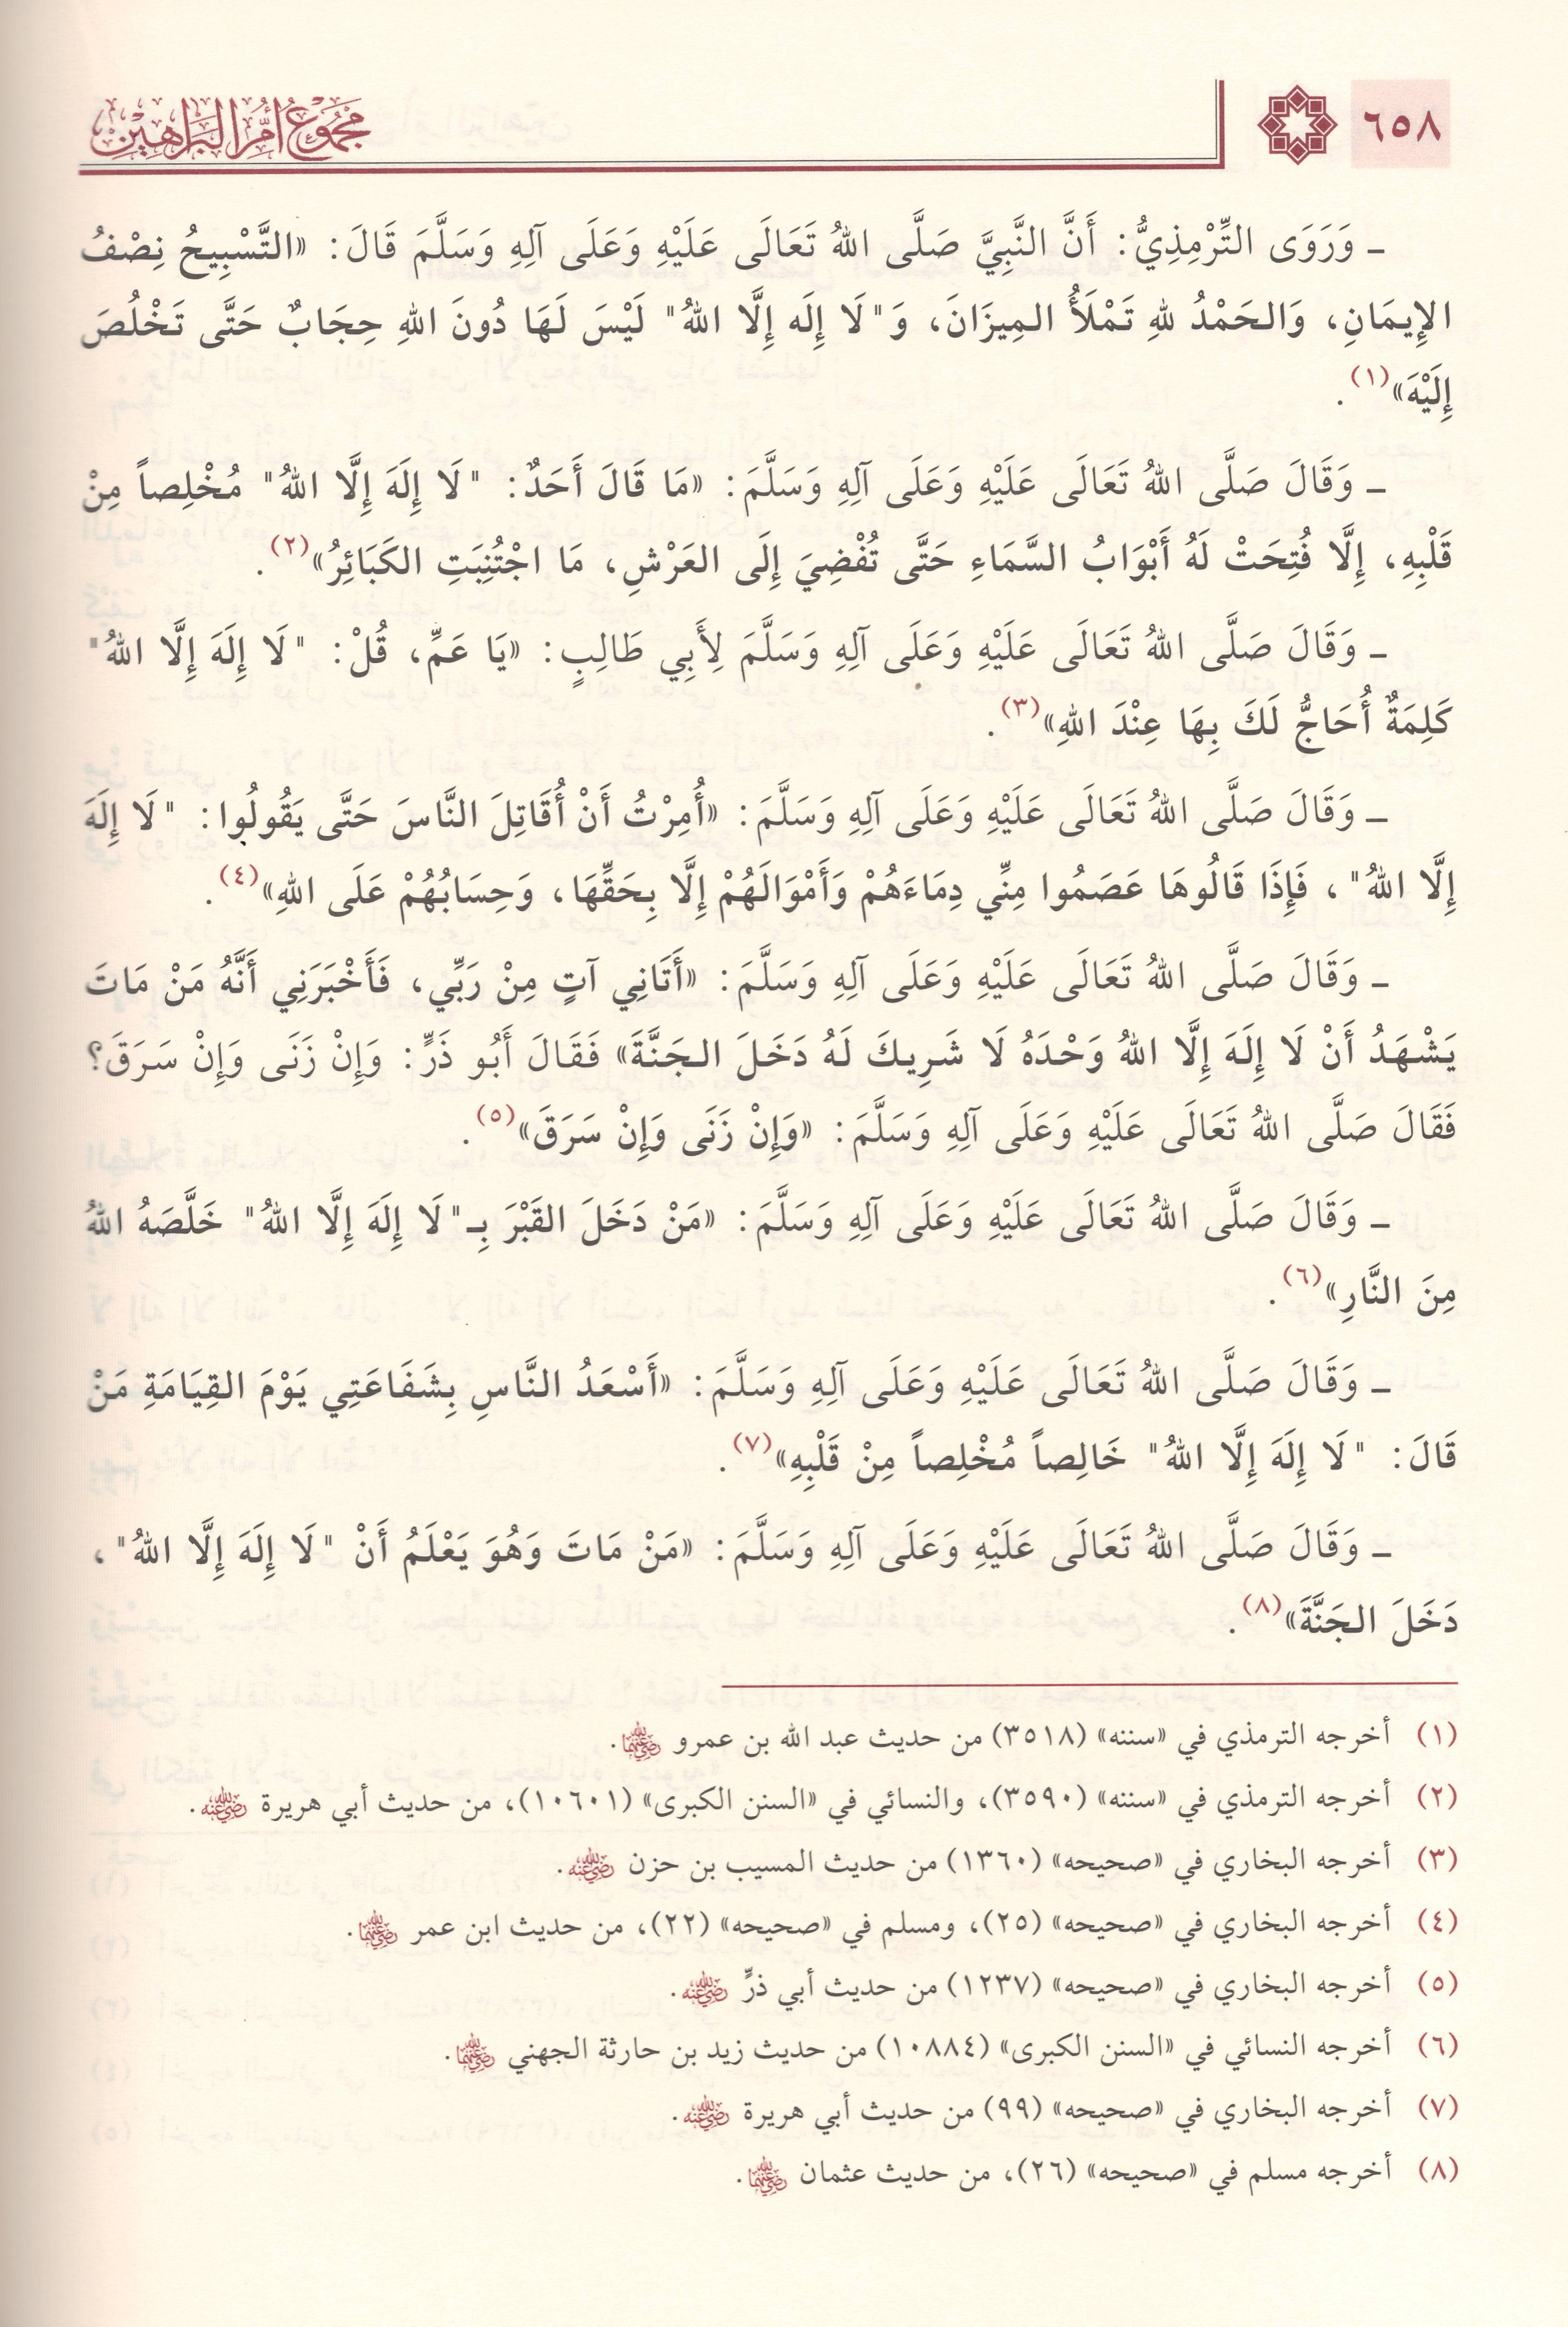 ٦٥٨
مجموع أم البراهين
ـ وَرَوَى التِّرْمِذِيُّ: أَنَّ النَّبِيَّ صَلَّى اللهُ تَعَالَى عَلَيْهِ وَعَلَى آلِهِ وَسَلَّمَ قَالَ: «التَّسْبِيحُ نِصْفُ
الإِيمَانِ، وَالحَمْدُ للهِ تَمْلَأُ المِيزَانَ، وَ"لَا إِلَه إِلَّا اللهُ" لَيْسَ لَهَا دُونَ اللهِ حِجَابٌ حَتَّى تَخْلُصَ
إِلَيْهَ»(١).
ـ وَقَالَ صَلَّى اللهُ تَعَالَى عَلَيْهِ وَعَلَى آلِهِ وَسَلَّمَ: «مَا قَالَ أَحَدٌ: "لَا إِلَهَ إِلَّا اللهُ" مُخْلِصاً مِنْ
قَلْبِهِ، إِلَّا فُتِحَتْ لَهُ أَبْوَابُ السَّمَاءِ حَتَّى تُفْضِيَ إِلَى العَرْشِ، مَا اجْتُنِبَتِ الكَبَائِرُ»(٢).
ـ وَقَالَ صَلَّى اللهُ تَعَالَى عَلَيْهِ وَعَلَى آلِهِ وَسَلَّمَ لِأَبِي طَالِبٍ: «يَا عَمِّ، قُلْ: "لَا إِلَهَ إِلَّا اللهُ"
كَلِمَةٌ أُحَاجُّ لَكَ بِهَا عِنْدَ اللهِ»(٣).
ـ وَقَالَ صَلَّى اللهُ تَعَالَى عَلَيْهِ وَعَلَى آلِهِ وَسَلَّمَ: «أُمِرْتُ أَنْ أُقَاتِلَ النَّاسَ حَتَّى يَقُولُوا: "لَا إِلَهَ
إِلَّا اللهُ"، فَإِذَا قَالُوهَا عَصَمُوا مِنِّي دِمَاءَهُمْ وَأَمْوَالَهُمْ إِلَّا بِحَقِّهَا، وَحِسَابُهُمْ عَلَى اللهِ»(٤).
ـ وَقَالَ صَلَّى اللهُ تَعَالَى عَلَيْهِ وَعَلَى آلِهِ وَسَلَّمَ: «أَتَانِي آتٍ مِنْ رَبِّي، فَأَخْبَرَنِي أَنَّهُ مَنْ مَاتَ
يَشْهَدُ أَنْ لَا إِلَهَ إِلَّا اللهُ وَحْدَهُ لَا شَرِيكَ لَهُ دَخَلَ الجَنَّةَ» فَقَالَ أَبُو ذَرٍّ: وَإِنْ زَنَى وَإِنْ سَرَقَ؟
فَقَالَ صَلَّى اللهُ تَعَالَى عَلَيْهِ وَعَلَى آلِهِ وَسَلَّمَ: «وَإِنْ زَنَى وَإِنْ سَرَقَ»(٥).
ـ وَقَالَ صَلَّى اللهُ تَعَالَى عَلَيْهِ وَعَلَى آلِهِ وَسَلَّمَ: «مَنْ دَخَلَ القَبْرَ بِـ"لَا إِلَهَ إِلَّا اللهُ" خَلَّصَهُ اللهُ
مِنَ النَّارِ»(٦).
ـ وَقَالَ صَلَّى اللهُ تَعَالَى عَلَيْهِ وَعَلَى آلِهِ وَسَلَّمَ: «أَسْعَدُ النَّاسِ بِشَفَاعَتِي يَوْمَ القِيَامَةِ مَنْ
قَالَ: "لَا إِلَهَ إِلَّا اللهُ" خَالِصاً مُخْلِصاً مِنْ قَلْبِهِ»(٧).
ـ وَقَالَ صَلَّى اللهُ تَعَالَى عَلَيْهِ وَعَلَى آلِهِ وَسَلَّمَ: «مَنْ مَاتَ وَهُوَ يَعْلَمُ أَنْ "لَا إِلَهَ إِلَّا اللهُ"،
دَخَلَ الجَنَّةَ»(٨).
(١) أخرجه الترمذي في «سننه» (٣٥١٨) من حديث عبد الله بن عمرو رضي الله عنهما.
(٢) أخرجه الترمذي في «سننه» (٣٥٩٠)، والنسائي في «السنن الكبرى» (١٠٦٠١)، من حديث أبي هريرة رضي الله عنه.
(٣) أخرجه البخاري في «صحيحه» (١٣٦٠) من حديث المسيب بن حزن رضي الله عنه.
(٤) أخرجه البخاري في «صحيحه» (٢٥)، ومسلم في «صحيحه» (٢٢)، من حديث ابن عمر رضي الله عنهما.
(٥) أخرجه البخاري في «صحيحه» (١٢٣٧) من حديث أبي ذرٍّ رضي الله عنه.
(٦) أخرجه النسائي في «السنن الكبرى» (١٠٨٨٤) من حديث زيد بن حارثة الجهني رضي الله عنهما.
(٧) أخرجه البخاري في «صحيحه» (٩٩) من حديث أبي هريرة رضي الله عنه.
(٨) أخرجه مسلم في «صحيحه» (٢٦)، من حديث عثمان رضي الله عنهما.